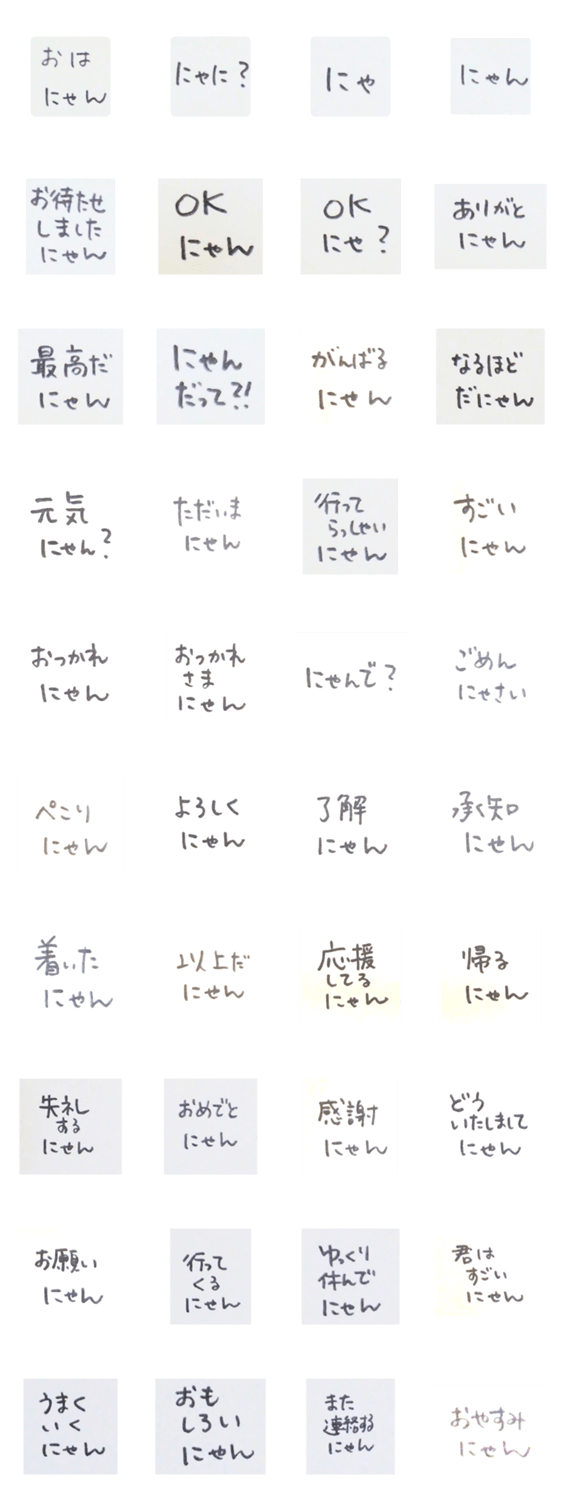 おは
にゃん
にゃに？
にゃ
にゃん
お待たせ
しました
にゃん
OK
にゃん
OK
にゃ？
ありがと
にゃん
最高だ
にゃん
にゃん
だって?!
がんばる
にゃん
なるほど
だにゃん
元気
にゃん?
ただいま
にゃん
行って
らっしゃい
にゃん
すごい
にゃん
おつかれ
にゃん
おつかれ
さま
にゃん
にゃんで？
ごめん
にゃさい
ぺこり
にゃん
よろしく
にゃん
了解
にゃん
承知
にゃん
着いた
にゃん
以上だ
にゃん
応援
してる
にゃん
帰る
にゃん
失礼
する
にゃん
おめでと
にゃん
感謝
にゃん
どう
いたしまして
にゃん
お願い
にゃん
行って
くる
にゃん
ゆっくり
休んで
にゃん
君は
すごい
にゃん
うまく
いく
にゃん
おも
しろい
にゃん
また
連絡する
にゃん
おやすみ
にゃん